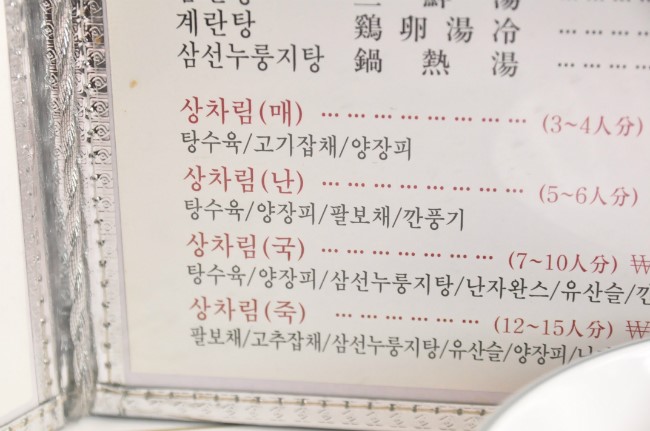 계란탕 鷄卵湯冷 … … …
삼선누룽지탕 鍋熱湯 … … …
상차림(매) … … … … … … … … … (3~4人分)
탕수육/고기잡채/양장피
상차림(난) … … … … … … … … … (5~6人分)
탕수육/양장피/팔보채/깐풍기
상차림(국) … … … … … … … … (7~10人分) ₩
탕수육/양장피/삼선누룽지탕/난자완스/유산슬/깐
상차림(죽) … … … … … … (12~15人分) ₩
팔보채/고추잡채/삼선누룽지탕/유산슬/양장피/